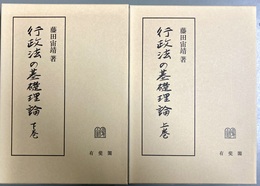 藤田宙靖 著
行政法の基礎理論 上巻
有斐閣
藤田宙靖 著
行政法の基礎理論 下巻
有斐閣